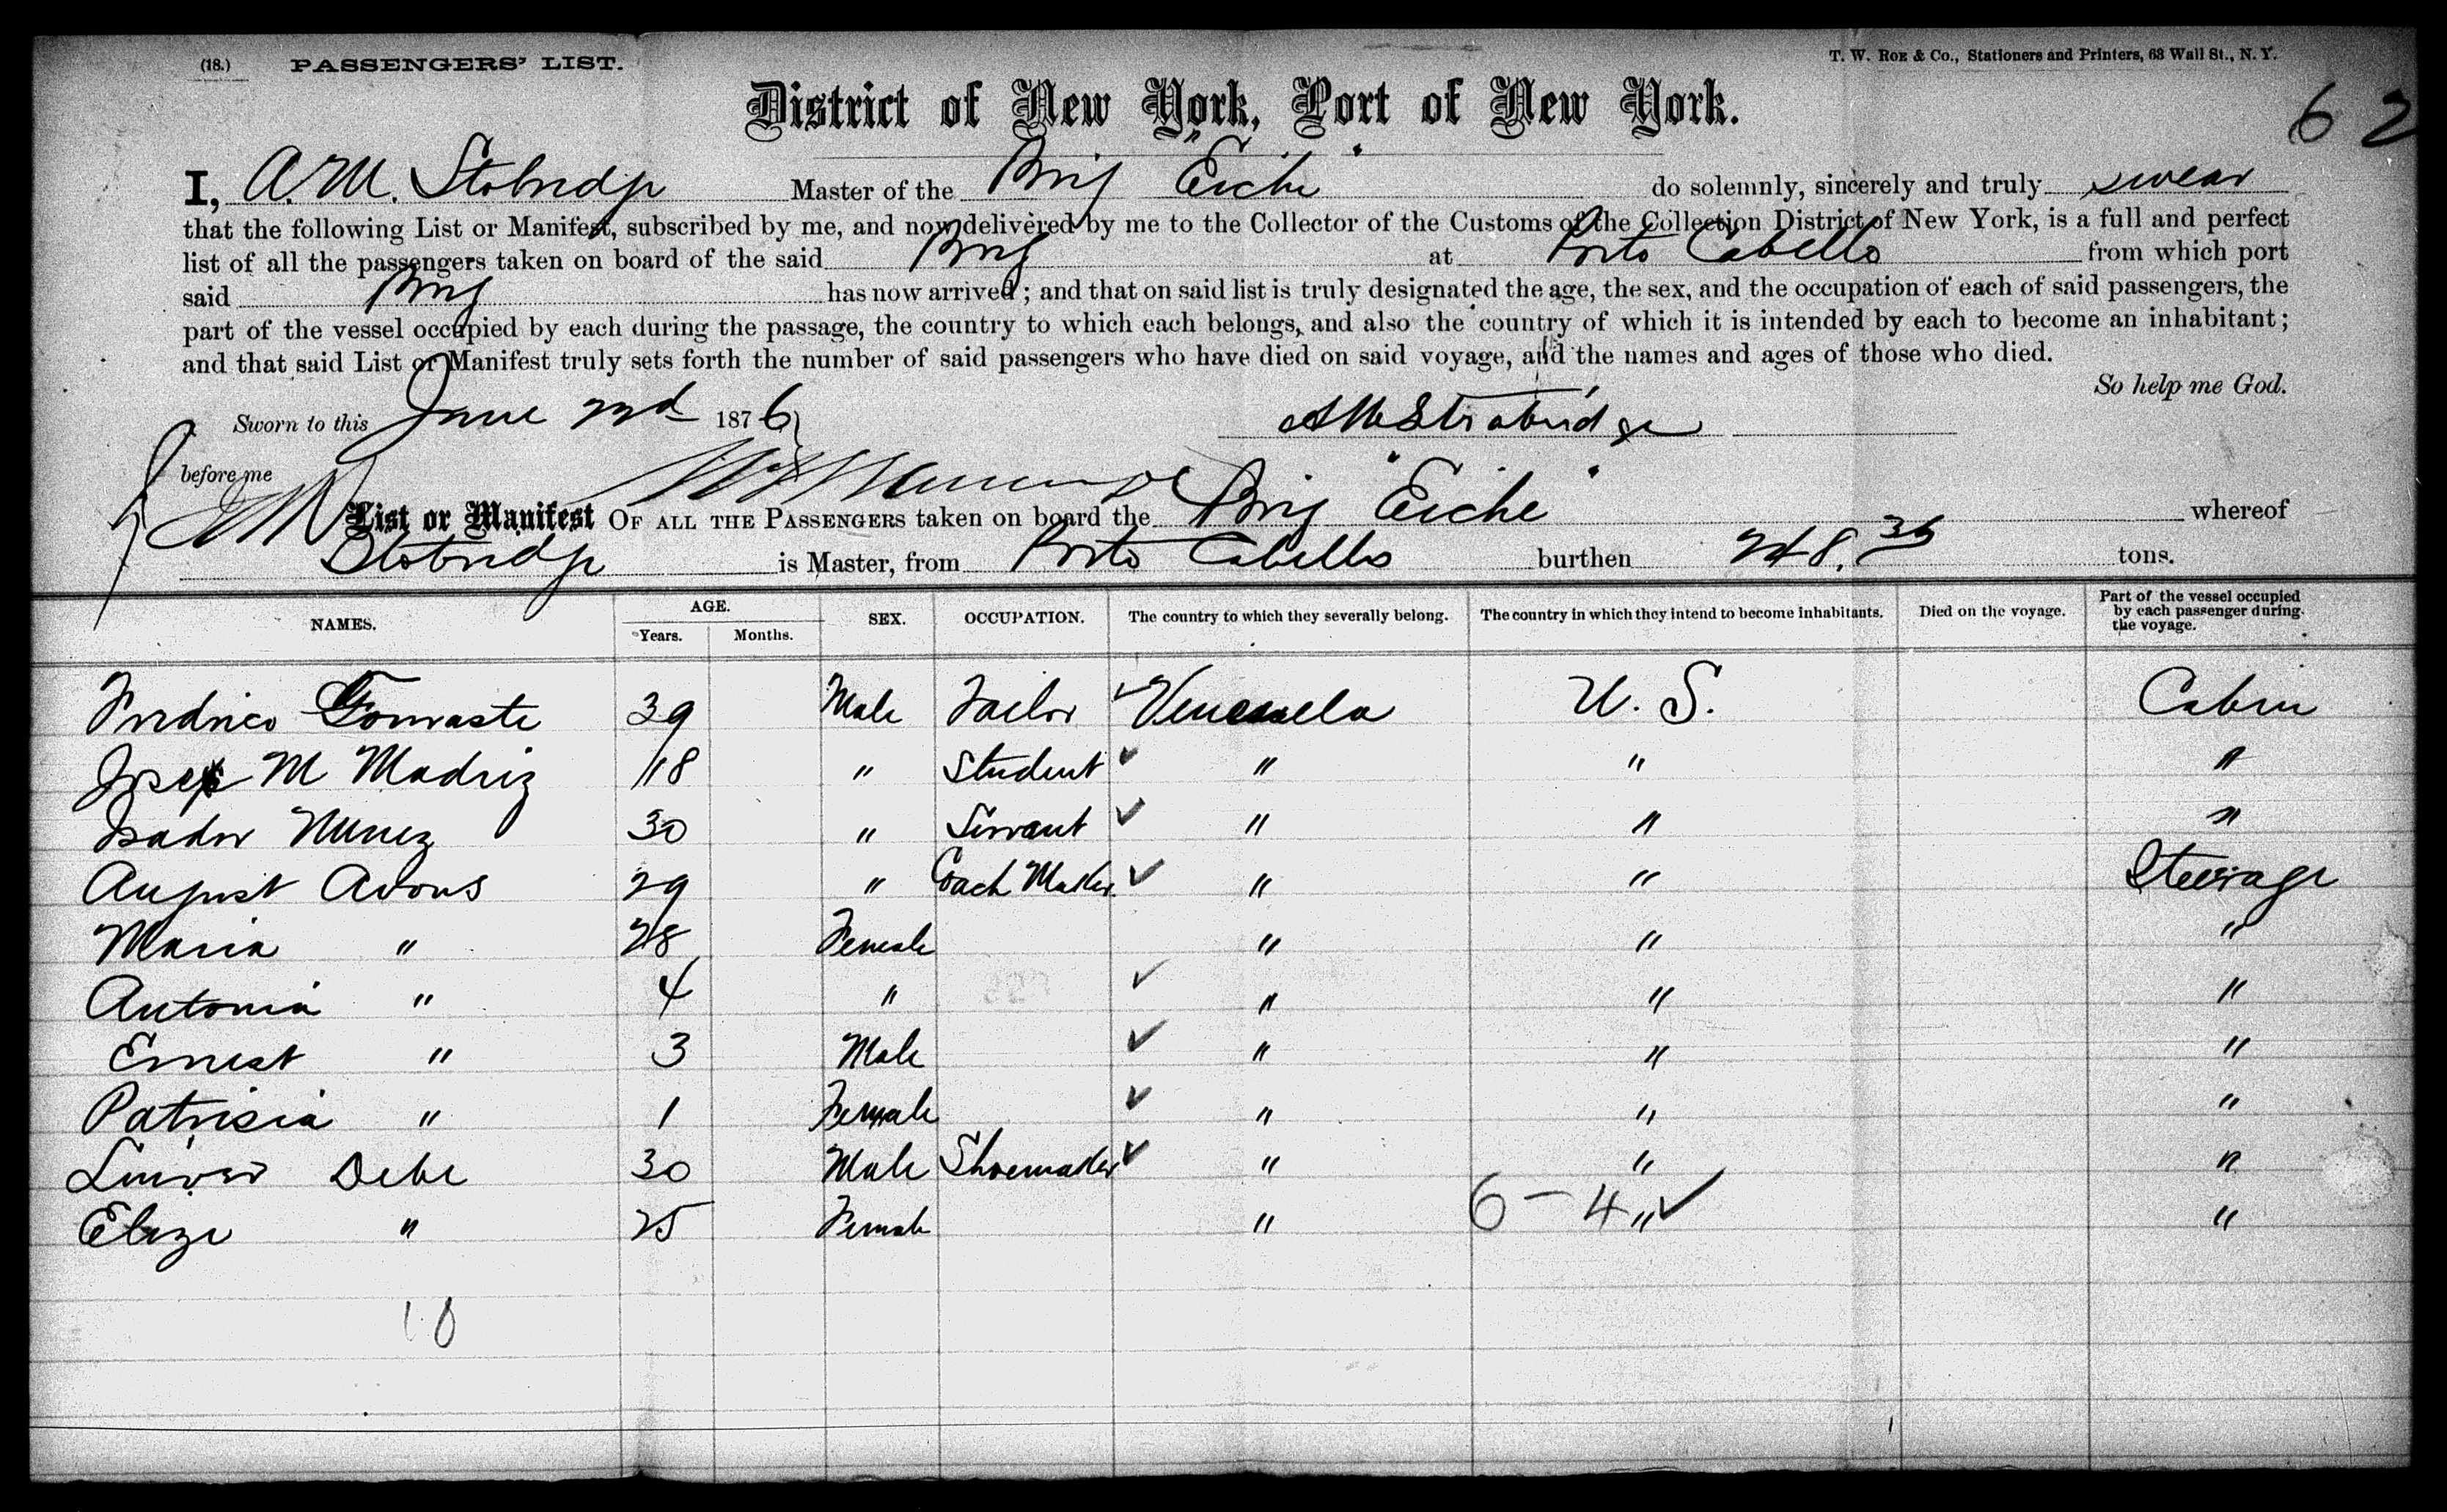 (18.) PASSENGERS' LIST. T. W. ROE & Co., Stationers and Printers, 63 Wall St., N. Y.
District of New York, Port of New York.
62
I, A. M. Stobridge Master of the Brig "Eiche" do solemnly, sincerely and truly swear
that the following List or Manifest, subscribed by me, and now delivered by me to the Collector of the Customs of the Collection District of New York, is a full and perfect
list of all the passengers taken on board of the said Brig at Porto Cabello from which port
said Brig has now arrived; and that on said list is truly designated the age, the sex, and the occupation of each of said passengers, the
part of the vessel occupied by each during the passage, the country to which each belongs, and also the country of which it is intended by each to become an inhabitant;
and that said List or Manifest truly sets forth the number of said passengers who have died on said voyage, and the names and ages of those who died.
So help me God.
Sworn to this June 22d 1876 AM Strobridge
before me
List or Manifest OF ALL THE PASSENGERS taken on board the Brig "Eiche" whereof
Stobridge is Master, from Porto Cabello burthen 248. tons.
NAMES. AGE. Years. Months. SEX. OCCUPATION. The country to which they severally belong. The country in which they intend to become inhabitants. Died on the voyage. Part of the vessel occupied by each passenger during the voyage.
39 Male Tailor ✓ Venezuela U. S. Cabin
M Madriz 18 " Student ✓ " " "
Isador Nunez 30 " Servant ✓ " " "
August Adous 29 " Coach Maker. ✓ " " Steerage
Maria " 28 Female " " "
Antonia " 4 " ✓ " " "
Ernest " 3 Male ✓ " " "
Patrisia " 1 Female ✓ " " "
Debe 30 Male Shoemaker ✓ " " "
Elize " 25 Female " 6 - 4 " ✓ "
10